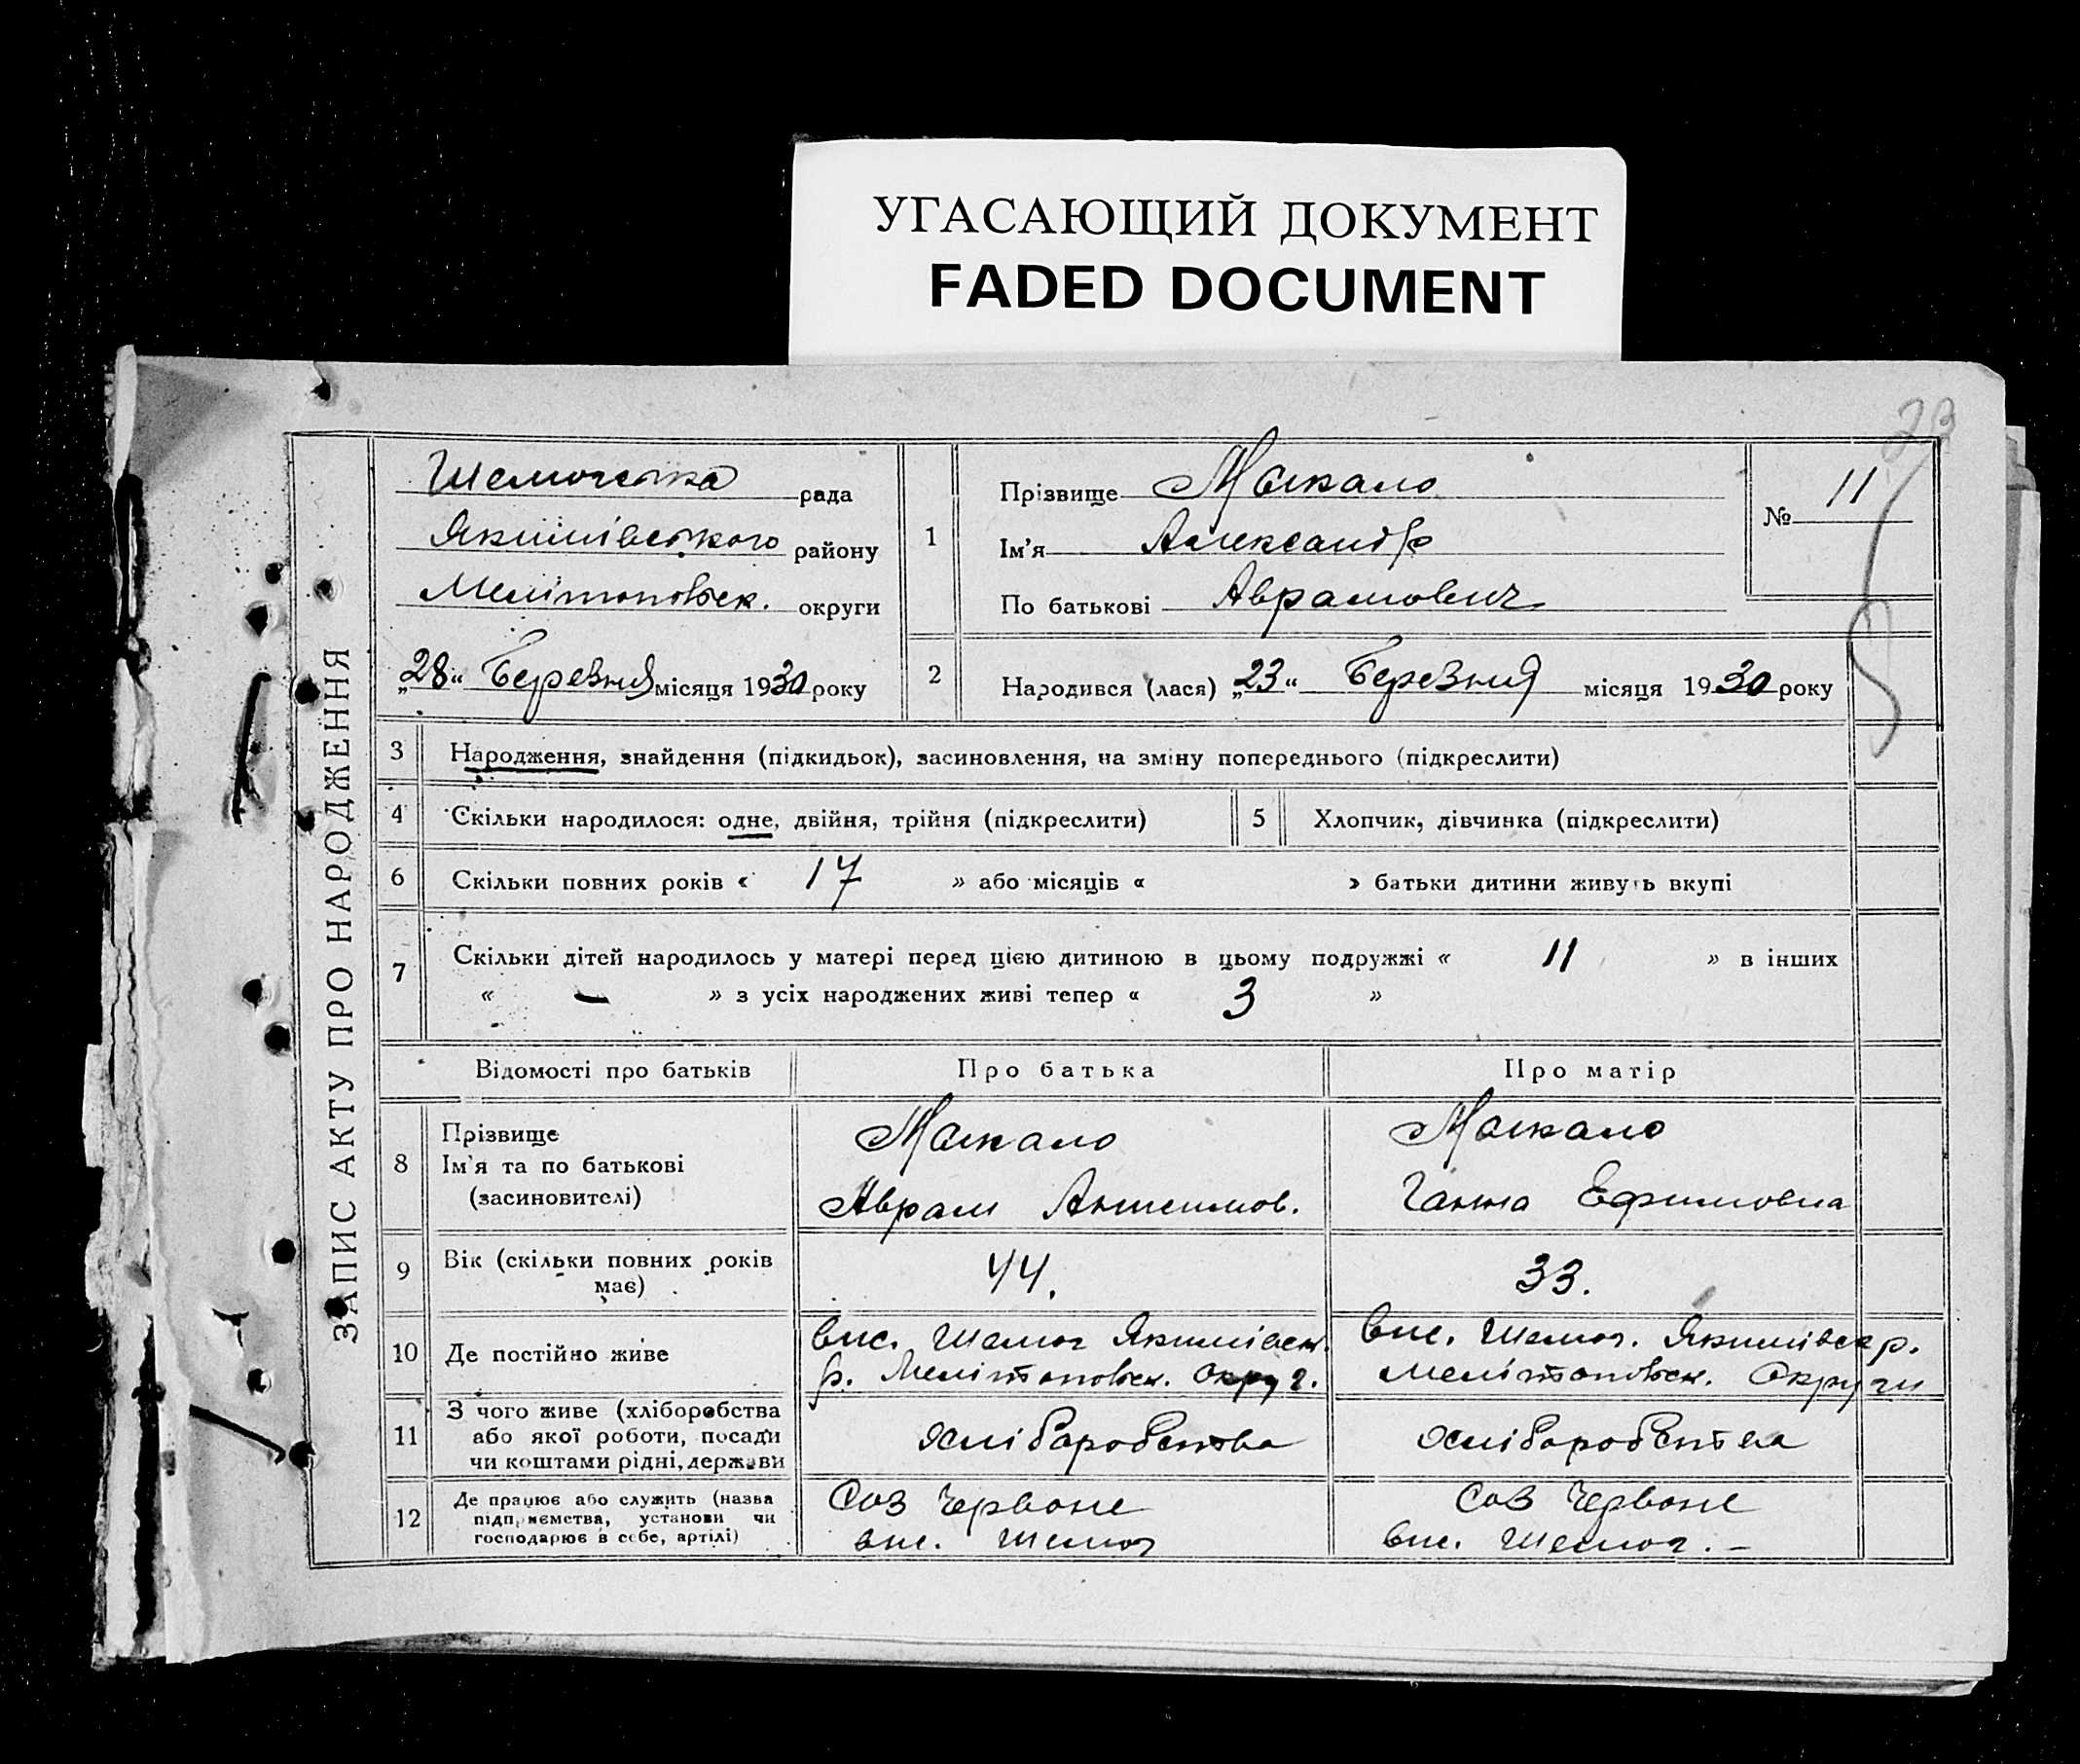 УГАСАЮЩИЙ ДОКУМЕНТ
FADED DOCUMENT
23
ЗАПИС АКТУ ПРО НАРОДЖЕННЯ
рада
Якимівського району
Мелітопольськ. округи
„28“ Березня місяця 1930 року
1
Прізвище Маскало
Ім'я Александр
По батькові Аврамович
№ 11
2
Народився (лася) „23“ Березня місяця 1930 року
3 Народження, знайдення (підкидьок), засиновлення, на зміну попереднього (підкреслити)
4 Скільки народилося: одне, двійня, трійня (підкреслити)
5 Хлопчик, дівчинка (підкреслити)
6 Скільки повних років « 17 » або місяців « » батьки дитини живуть вкупі
7 Скільки дітей народилось у матері перед цією дитиною в цьому подружжі « 11 » в інших
« — » з усіх народжених живі тепер « 3 »
Відомості про батьків Про батька Про матір
8 Прізвище
Ім'я та по батькові
(засиновителі)
Маскало
Аврам
Маскало
Ганна Ефимовна
9 Вік (скільки повних років
має)
44.
33.
10 Де постійно живе
вис. Якимівськ.
р. Мелітопольськ. округ.
вис. Якимівск р.
Мелітопольськ. Округи
11 З чого живе (хліборобства
або якої роботи, посади
чи коштами рідні, держави
хліборобства
хліборобства
12 Де працює або служить (назва
підприємства, установи чи
господарює в себе, артілі)
Соз Червоне
вис.
Соз Червоне
вис.